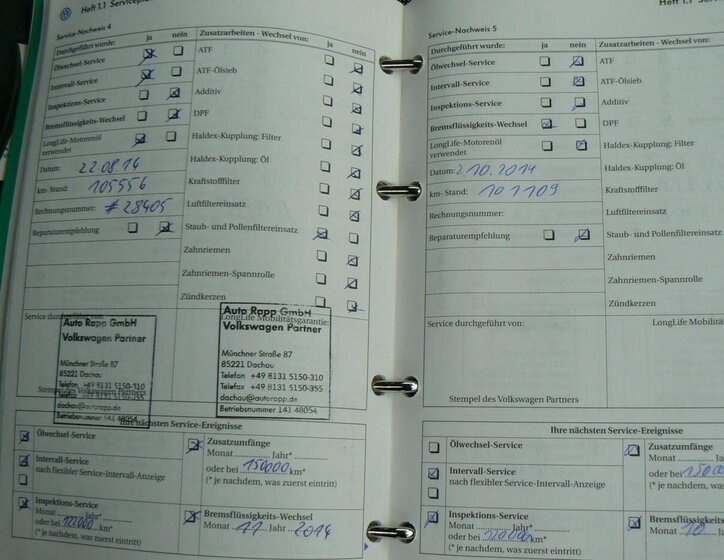 Heft 1.1
Service-Nachweis 4
Durchgeführt wurde: ja nein
Ölwechsel-Service
Intervall-Service
Inspektions-Service
Bremsflüssigkeits-Wechsel
LongLife-Motorenöl
verwendet
Datum: 22.08.14
km-Stand: 105556
Rechnungsnummer: #28405
Reparaturempfehlung
Zusatzarbeiten - Wechsel von: ja nein
ATF
ATF-Ölsieb
Additiv
DPF
Haldex-Kupplung: Filter
Haldex-Kupplung: Öl
Kraftstofffilter
Luftfiltereinsatz
Staub- und Pollenfiltereinsatz
Zahnriemen
Zahnriemen-Spannrolle
Zündkerzen
Service durchgeführt von:
LongLife Mobilitätsgarantie:
Auto Rapp GmbH
Volkswagen Partner
Münchner Straße 87
85221 Dachau
Telefon +49 8131 5150-310
Telefax +49 8131 5150-355
dachau@autorapp.de
Betriebsnummer 141 48054
Auto Rapp GmbH
Volkswagen Partner
Münchner Straße 87
85221 Dachau
Telefon +49 8131 5150-310
Telefax +49 8131 5150-355
dachau@autorapp.de
Betriebsnummer 141 48054
Stempel des Volkswagen Partners
Ihre nächsten Service-Ereignisse
Ölwechsel-Service
Intervall-Service
nach flexibler Service-Intervall-Anzeige
Inspektions-Service
Monat Jahr*
oder bei 122000 km*
(* je nachdem, was zuerst eintritt)
Zusatzumfänge
Monat Jahr*
oder bei 150000 km*
(* je nachdem, was zuerst eintritt)
Bremsflüssigkeits-Wechsel
Monat 11 Jahr 2014
Heft 1.1
Service-Nachweis 5
Durchgeführt wurde: ja nein
Ölwechsel-Service
Intervall-Service
Inspektions-Service
Bremsflüssigkeits-Wechsel
LongLife-Motorenöl
verwendet
Datum: 2.10.2014
km-Stand: 107109
Rechnungsnummer:
Reparaturempfehlung
Zusatzarbeiten - Wechsel von:
ATF
ATF-Ölsieb
Additiv
DPF
Haldex-Kupplung: Filter
Haldex-Kupplung: Öl
Kraftstofffilter
Luftfiltereinsatz
Staub- und Pollenfiltereinsatz
Zahnriemen
Zahnriemen-Spannrolle
Zündkerzen
Service durchgeführt von:
LongLife Mobil
Stempel des Volkswagen Partners
Ihre nächsten Service-Ereignisse
Ölwechsel-Service
Intervall-Service
nach flexibler Service-Intervall-Anzeige
Inspektions-Service
Monat Jahr*
oder bei km*
(* je nachdem, was zuerst eintritt)
Zusatzumfänge
Monat Jahr
oder bei
(* je nachdem, was
Bremsflüssigkeits
Monat Jahr